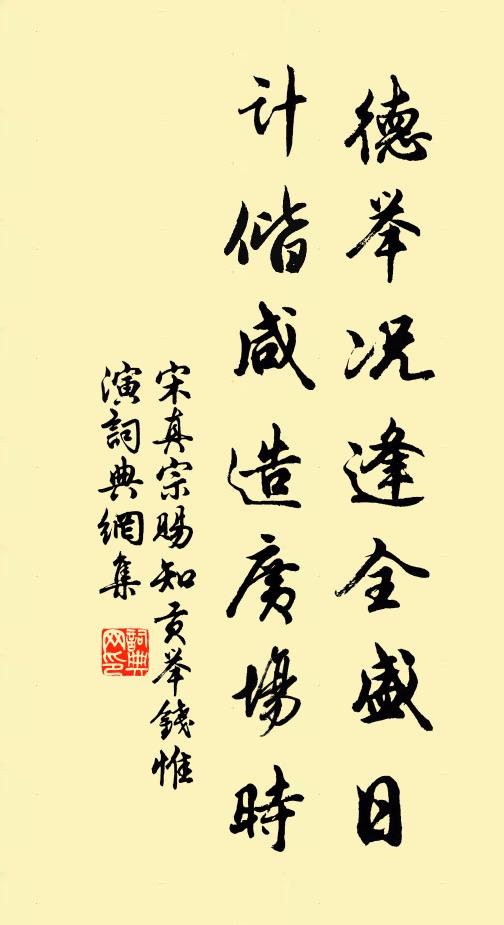 德举况逢全盛日
计偕咸造廣場時
宋真宗賜知贡举錢惟
演詞典網集
詞典
网印